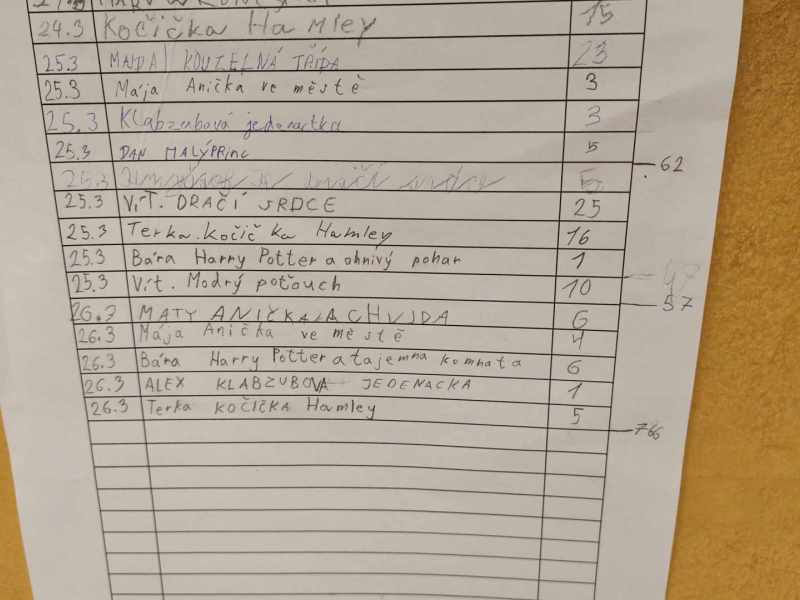 24.3 Kočička Hamley 15
25.3 MAJDA KOUZELNÁ TŘÍDA 23
25.3 Mája Anička ve městě 3
25.3 Klabzubová jedenactka 3
25.3 DAN MALÝ PRINC 5
62
25.3 dračí srdce 5
25.3 VíT. DRAČÍ SRDCE 25
25.3 Terka. kočička Hamley 16
25.3 Bára Harry Potter a ohnivý pohar 1
25.3 Vít. Modrý poťouch 10
57
26.3 MATY ANIČKA A CHUJDA 6
26.3 Mája Anička ve městě 4
26.3 Bára Harry Potter a tajemna komnata 6
26.3 ALEX KLABZUBOVA JEDENACKA 1
26.3 Terka KOČIČKA Hamley 5
766